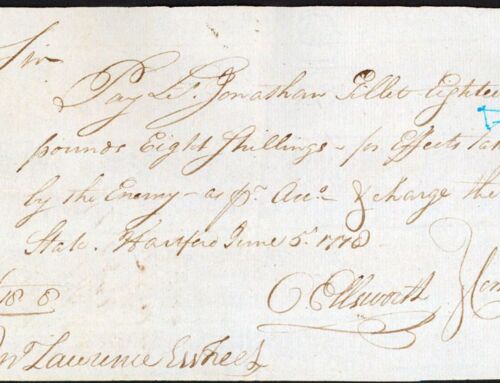 Sir
Pay Lt. Jonathan Gillet Eightee
pounds Eight Shillings - for Effects tak
by the Enemy - as pr. Acco. & charge the
State. Hartford June 5t. 1778
18 8
O. Ellsworth } Com
Jn° Lawrence Esqr